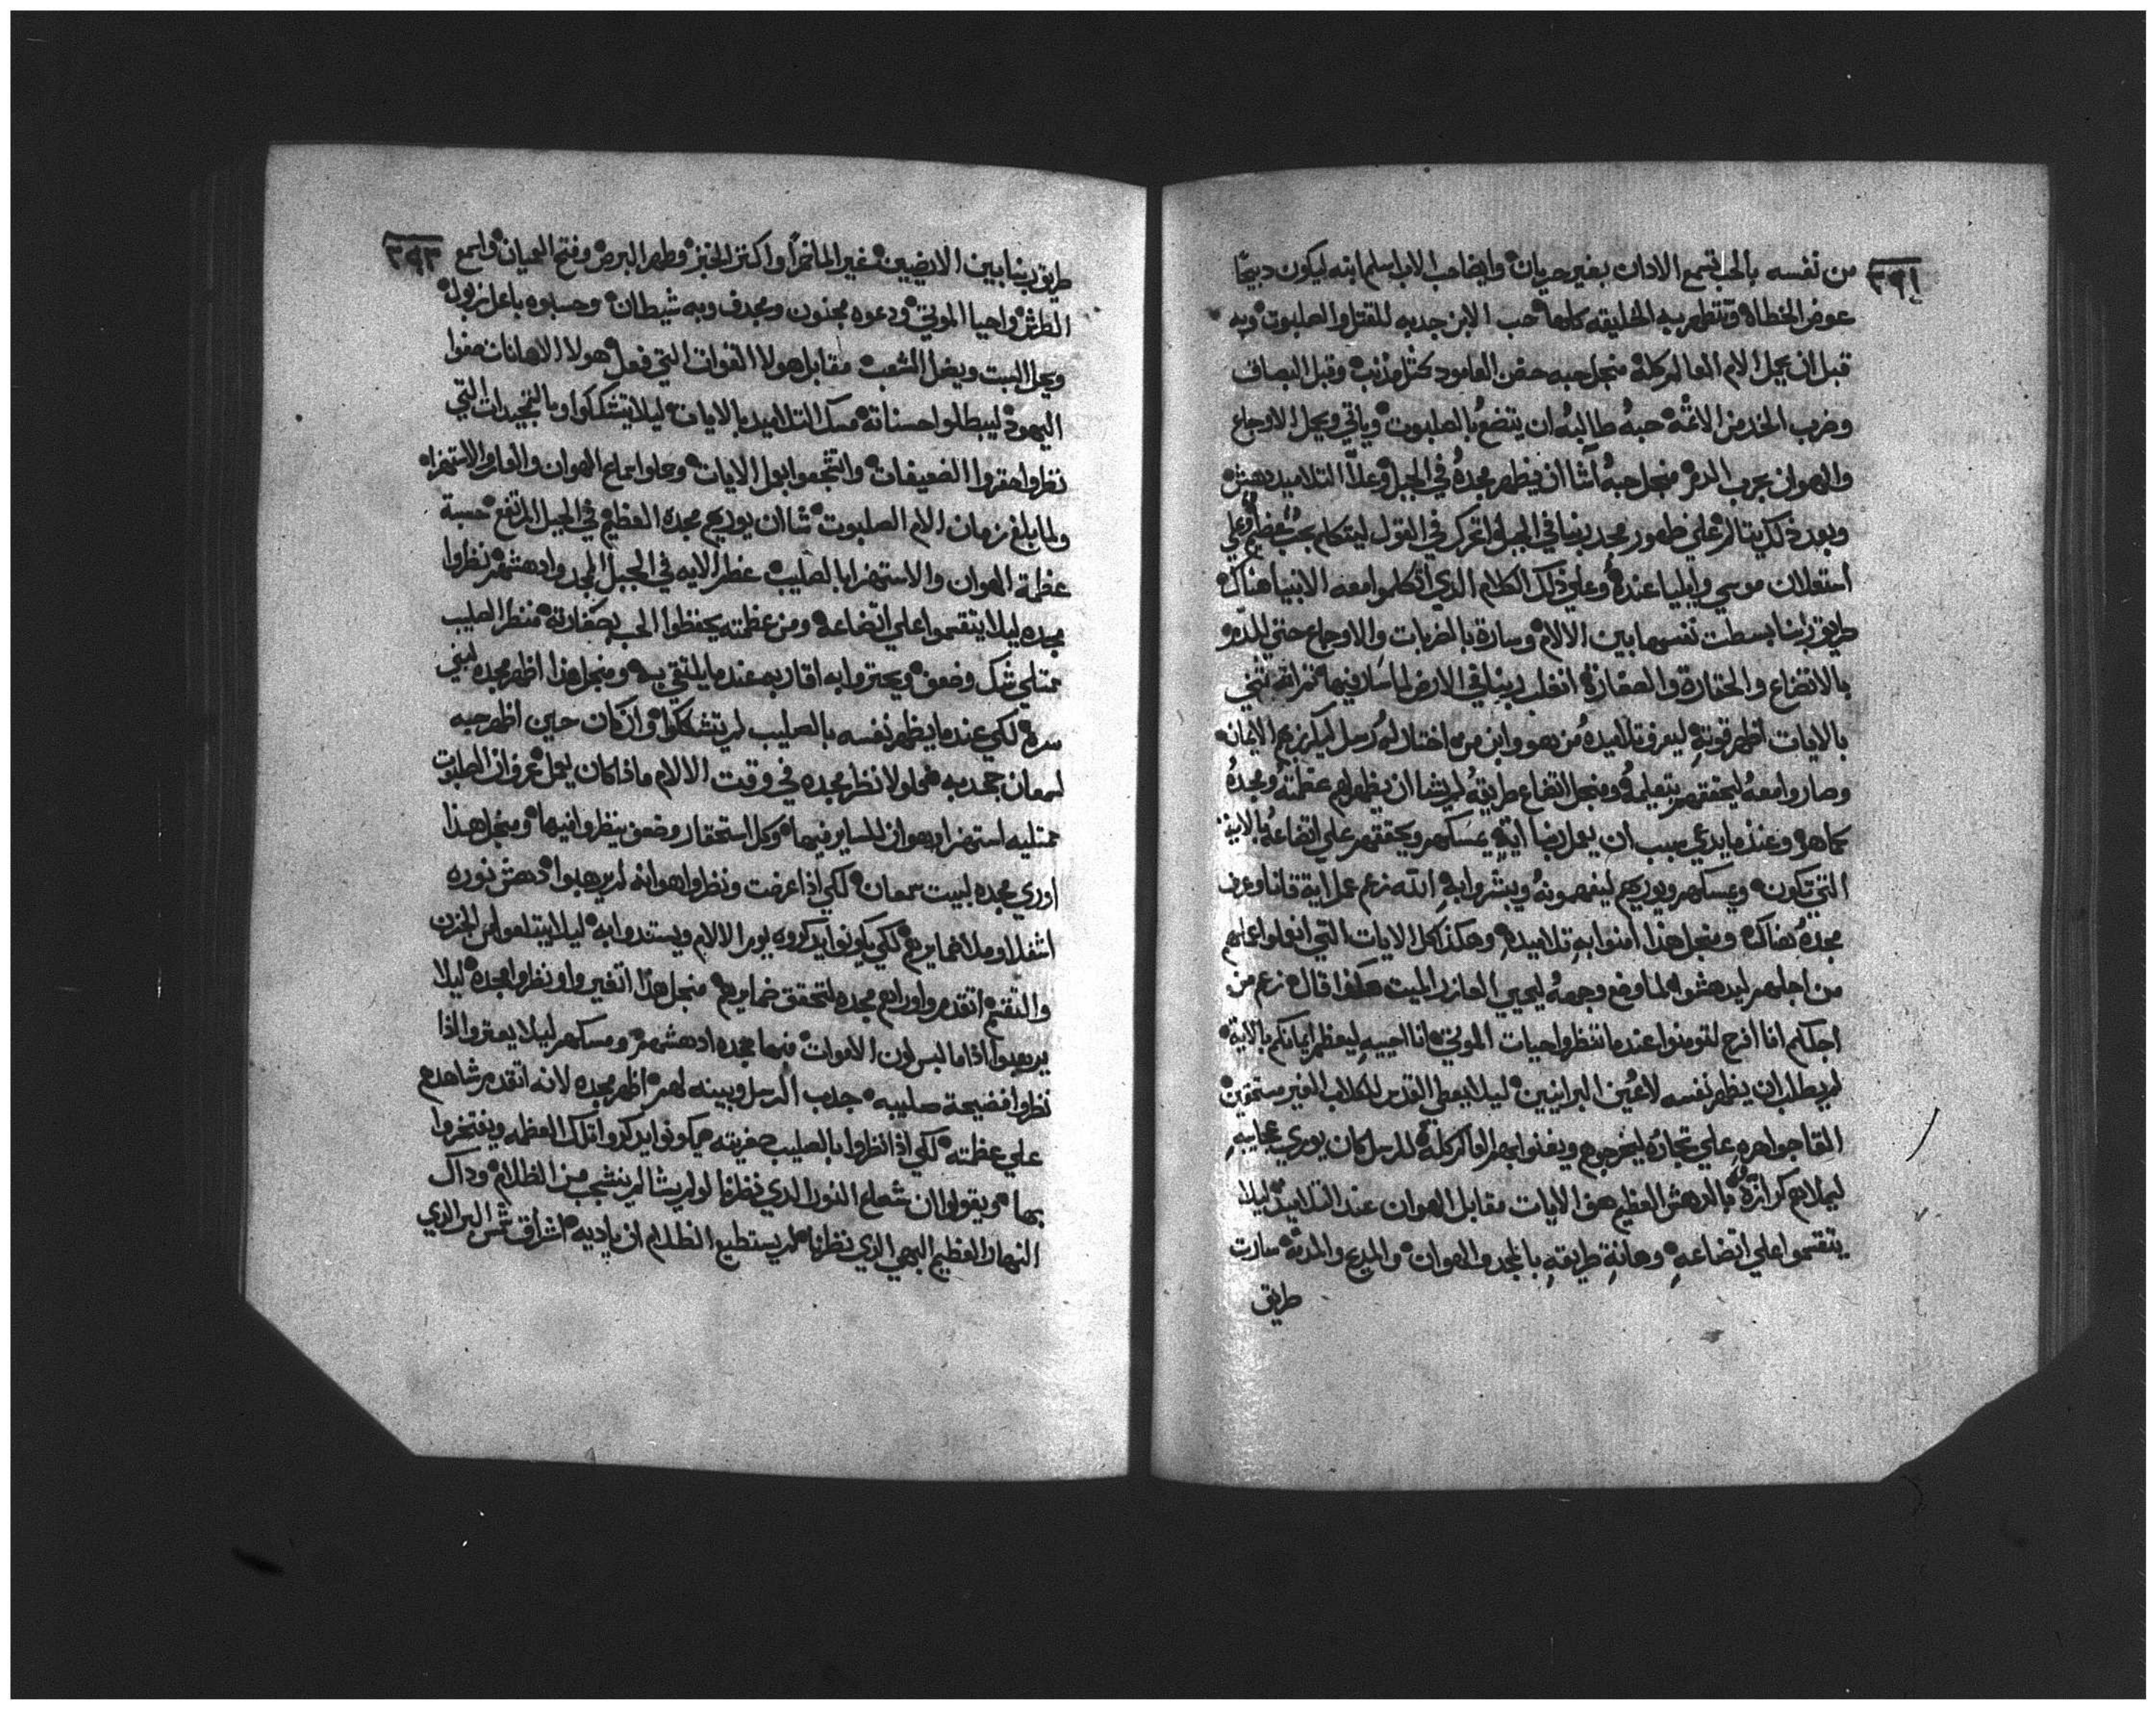 ٣٩٢
من نفسه بالحب تسمع الادان بغير حريان وايضا حب الاب اسلم ابنه ليكون دبيحًا
عوض الخطاه وتتطهر به الخليقه كلها حب الابن جدبه للقتل والصلبوت وبه
قبل ان يحمل الام العالم كله منجل حبه حضن العامود كمثل مذنب وقبل البصاق
وضرب الخد من الاثمه حبهُ طالبهُ ان يتضع بالصلبوت وياتي ويحمل الاوجاع
والهوان بحرب الدم منجل حبهُ اشا ان يظهر مجدهُ في الجبل وعلا التلاميد دهش
وبعد ذلك يتالم علي ظهور مجد ربنا في الجبل اتحرك في القول ليتكلم بحب عظيم وعلي
استعلان موسي وايليا عندهُ وعلي ذلك الكلام الدي اتكلموا معه الانبيا هناك
طريق ربنا بسطت نفسها بين الالام وسارة بالضربات والاوجاع حتي الدم
بالاتضاع والحقارة والصغارة انفلب ربنا في الارض لما سار فيها
بالايات اظهر قوته ليعرف تلاميده من هو وابن من اختار له رسل ليكرز بهم الايمان
وصاروا معهُ ليحققهم بتعليمهُ ومنجل اتضاع طريقهُ لم يشا ان يظهر لهم عظمتهُ ومجدهُ
كما هو وعندما يدعي سبب ان يعمل ايضا ايةٍ يمسكهم ويحققهم علي اتضاعهُ بالاية
التي تكون ويمسكهم ويوريهم ليفهمونهُ ويبشروا به الله زعم عمل اية قانا وعرف
مجدهُ هناك ومنجل هذا امنوا به تلاميده وهكذا كل الايات التي انفعلوا عملهم
من اجلهم ليدهشوا لما وضع وجههُ ليحيي العازر الميت هكذا قال زعم من
اجلكم انا افرح لتومنوا عندما تنظروا حيات الموتي انا احييه ليعظم ايمانكم بالاية
لم يطلب ان يظهر نفسه لاعُين البرانيين ليلا يعطي القدس للكلاب الغير مستحقين
القا جواهره علي تجاره ليخرجوهم ويغنوا بهم العالم كله للرسل كان يوري عجايبهِ
ليملاهم كرازةُ بالدهش العظيم هو الايات مقابل الهوان عند التلاميد ليلا
يتقسموا علي اتضاعهِ وهانةِ طريقهِ بالمجد والهوان والمدح والمدمه سارت
طريق
٣٩٣
طريق ربنا بين الارضيين غير الما خمراً واكتر الخبز وطهر البرص وفتح العميان واسمع
الطرش واحيا الموتي ودعوه مجنون ومجدف وبه شيطان وحسبوه باعلزبول
ويحل السبت ويضل الشعب مقابل هولا القوات التي فعل هولا الاهانات صنعوا
اليهود ليبطلوا حسناته مسك التلاميد بالايات ليلا يتشككوا وبالتمجيدات التي
نظروا حقروا الضعيفات واتشجعوا بهول الايات وحملوا سماع الهوان والعار والاستهزاه
ولما بلغ زمان الام الصلبوت شا ان يوريهم مجده العظيم في الجبل المرتفع حسبة
عظمة الهوان والاستهزا بالصليب عظم الايه في الجبل المجد وادهشهم نظروا
مجده ليلا يتقسموا علي اتضاعه ومن عظمته يحفظوا الحب بصغارته منظر الصليب
ممتلي شك وضعف ويعتروا به اقاربه عندما يلتقي به ومنجل هذا اظهر مجده لبني
سره لكي عندما يظهر نفسه بالصليب لم يتشككوا وان كان حين اظهر حبه
لسمعان جحد به فلولا نظر مجده في وقت الالام ماذا كان يعمل عرف ان الصلبوت
ممتليه استهزا وهوان للساير فيها وكل استحقار وضعف ينظروا فيها ومنجل هذا
اوري مجده لبيت سمعان لكي اذا عرفت ونظروا هوانه لم يرهبوا دهش نوره
اشعلا وملا ضمايرهم لكي يكونوا يدكروه يوم الالام ويستدوا به ليلا يبتلعوا من الحزن
والتقسم اتقدم واوراهم مجده لتحقق ضمايرهم منجل هذا اتغير واونظروا مجده ليلا
يرتعبوا اذا ما لبس لون الاموات فيما مجده ادهشهم ومسكهم ليلا يعتروا اذا
نظروا فضيحة صليبه جدب الرسل وبينه لهم اظهر مجده لانه اتقدم شاهدهم
علي عظمته لكي اذا نظروا بالصليب صغريته يكونوا يدكروا تلك العظمه ويفتخروا
بها ويقولوا ان شعاع النور الدي نظرنا لو لم يشا لم ينشجب من الظلام وداك
النهار العظيم البهي الدي نظرنا لم يستطيع الظلام ان ياديه اشراق شمس البر الدي